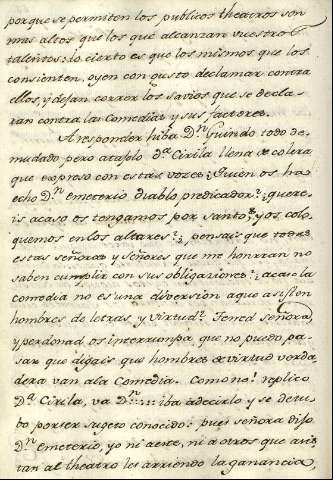 porque se permiten los publicos theatros son
mas altos que los que alcanzan vuestros
talentos: lo cierto es que los mismos que los
consienten, oyen con gusto declamar contra
ellos, y dejan correr los savios que se decla-
ran contra las Comedias y sus factores.
A responder hiba D.n Guindo todo de-
mudado, pero atajolo d.a Cirila llena de colera
que expreso con estas voces: ¿Quién os ha
echo D.n Emeterio diablo, predicador? ¿quere-
is acaso os tengamos por santo? y os colo-
quemos en los altares? ¿pensais que todas
estas señoras y señores que me honrran no
saben cumplir con sus obligaciones? ¿acaso la
comedia no es una diversion a que asisten
hombres de letras, y virtud? Tened señora,
y perdonad, os interrumpa, que no puedo pa-
sar que digais que hombres de virtud verda-
dera van a la Comedia. Como no! replico
D.a Cirila, va D.n ..... iba a decirlo y se detu-
bo por ser sugeto conocido: pues señora dijo
D.n Emeterio, yo ni a este, ni a otros que asis-
tan al theatro les arriendo la ganancia,